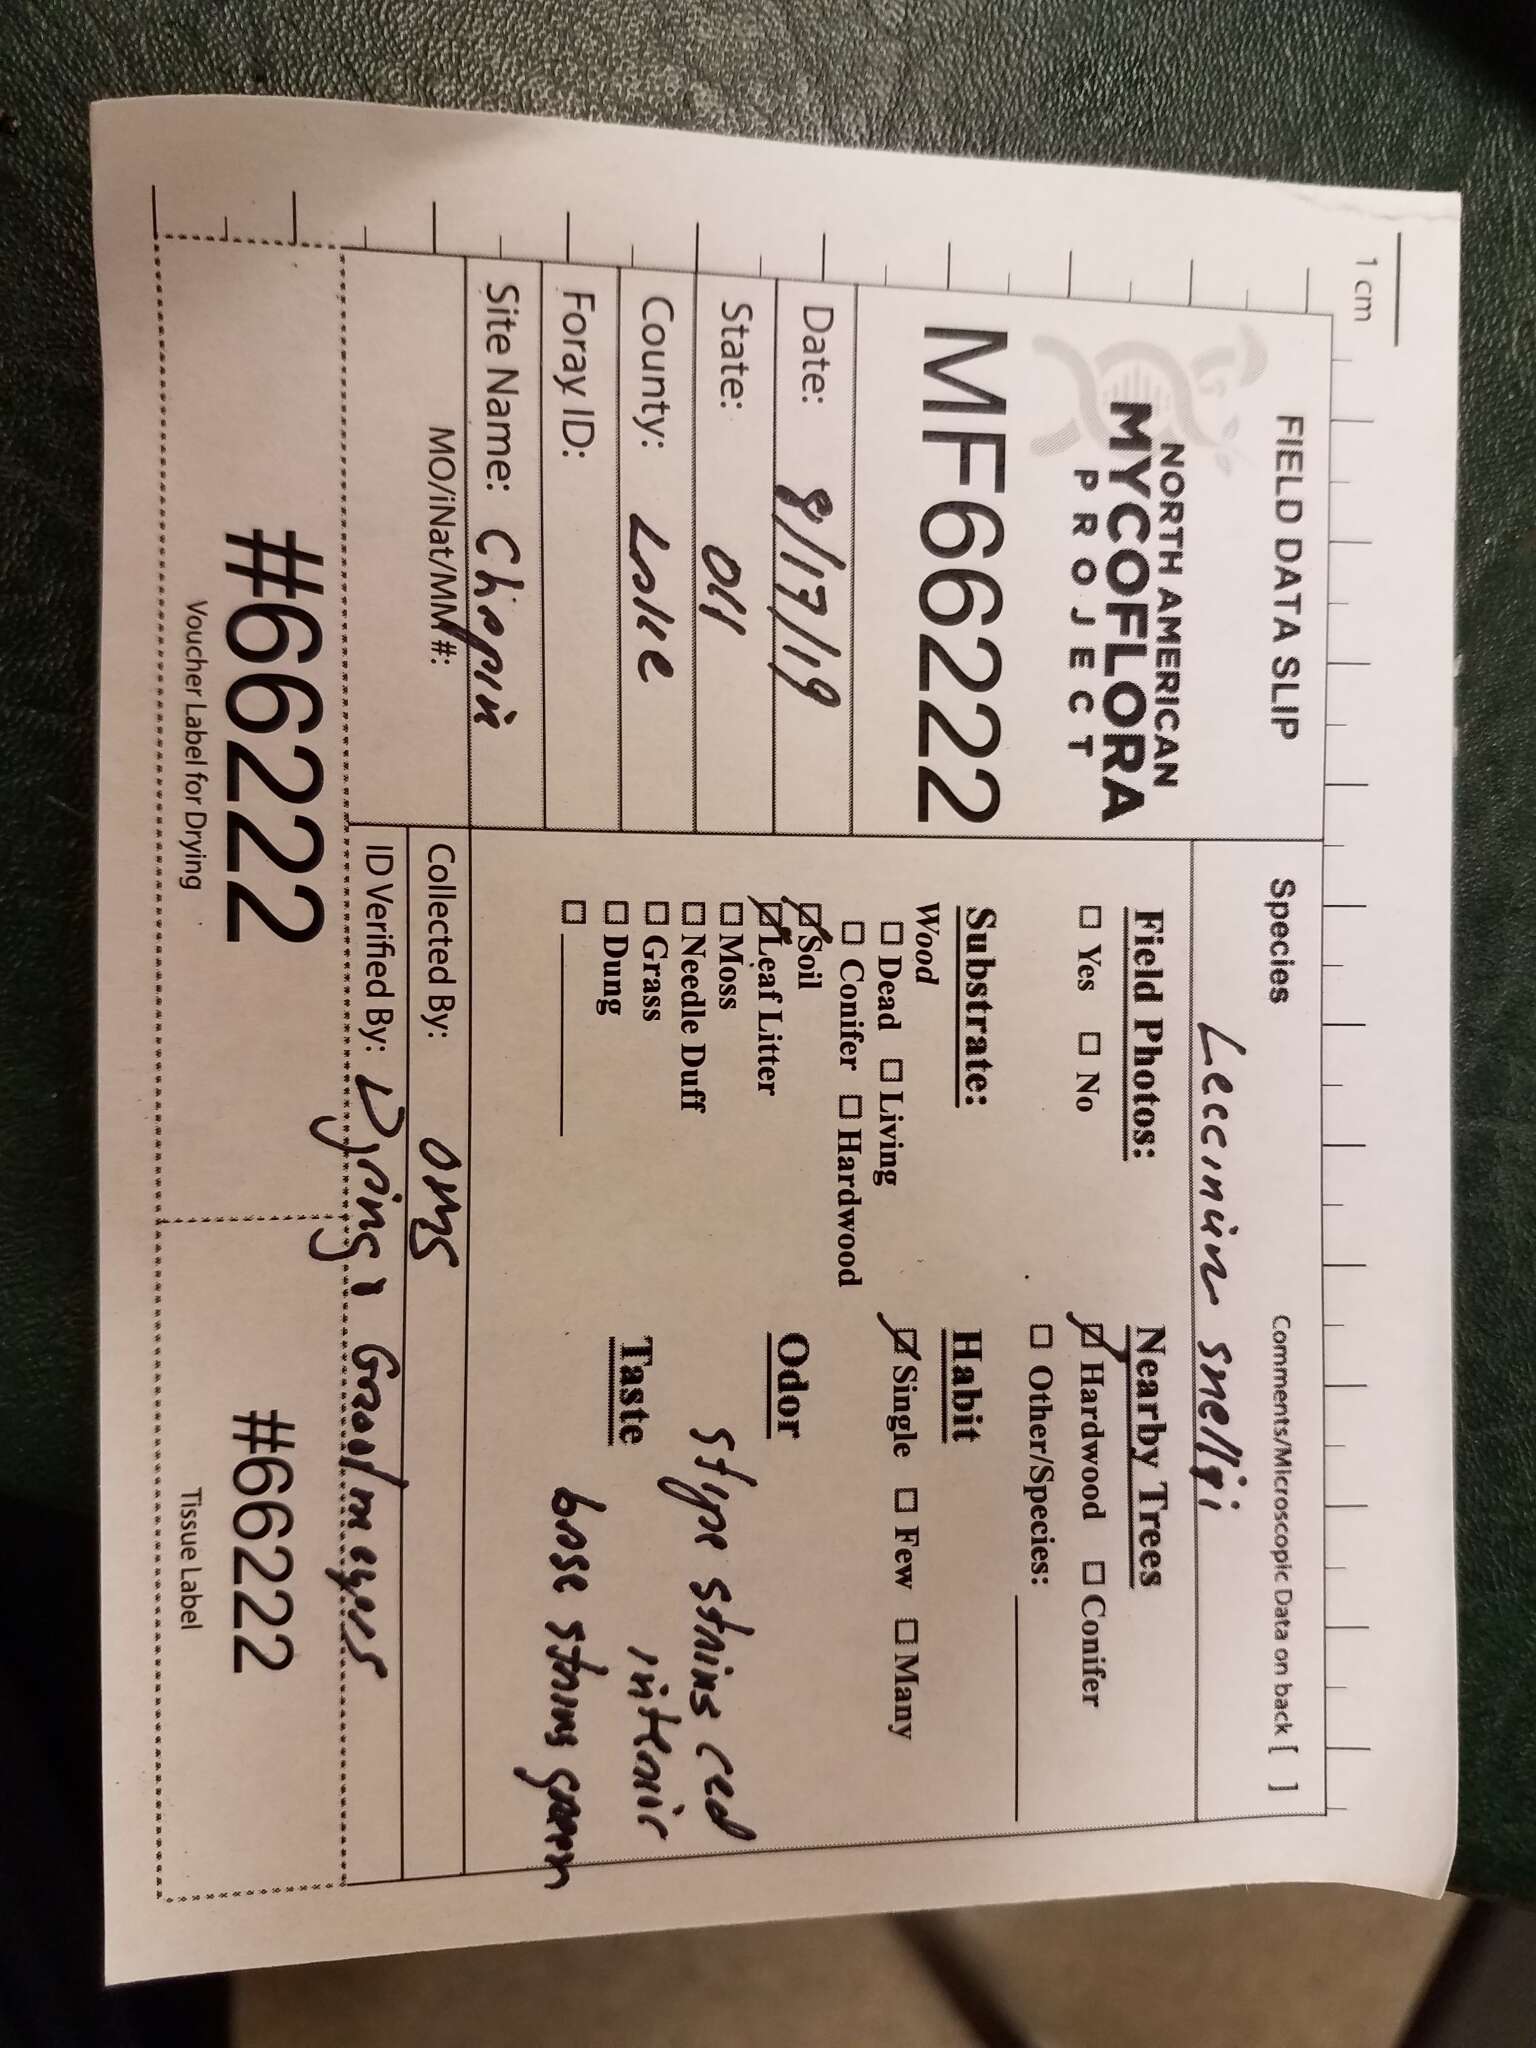 1 cm
FIELD DATA SLIP
NORTH AMERICAN
MYCOFLORA
PROJECT
MF66222
Date: 8/17/19
State: OH
County: Lake
Foray ID:
Site Name: Chapin
MO/iNat/MM #:
Species Comments/Microscopic Data on back [ ]
Leccinum snellii
Field Photos:
☐ Yes ☐ No
Substrate:
Wood
☐ Dead ☐ Living
☐ Conifer ☐ Hardwood
☑ Soil
☑ Leaf Litter
☐ Moss
☐ Needle Duff
☐ Grass
☐ Dung
☐
Nearby Trees
☑ Hardwood ☐ Conifer
☐ Other/Species:
Habit
☑ Single ☐ Few ☐ Many
Odor
stype stains red
interior
Taste
base stains green
Collected By: OMS
ID Verified By:
#66222
Voucher Label for Drying
#66222
Tissue Label